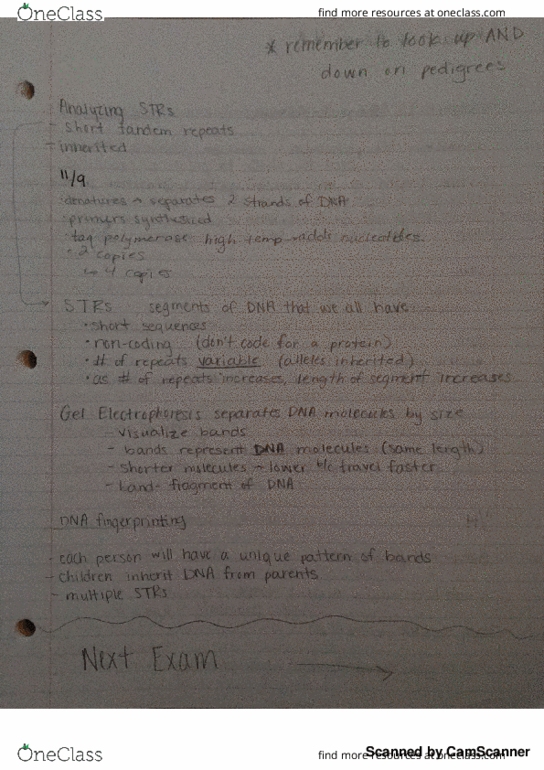 OneClass
find more resources at oneclass.com
* remember to look up AND
down on pedigrees
Analyzing STRs
- short tandem repeats
- inherited
11/9
· denatures → separates 2 strands of DNA
· primers synthesized
· taq polymerase high temp → adds nucleotides
· 2 copies
↳ 4 copies
STRs segments of DNA that we all have
· short sequences
· non-coding (don't code for a protein)
· # of repeats variable (alleles inherited)
· as # of repeats increases, length of segment increases
Gel Electrophoresis separates DNA molecules by size
- visualize bands
- bands represent DNA molecules (same length)
- shorter molecules → lower b/c travel faster
- band - fragment of DNA
DNA fingerprinting
- each person will have a unique pattern of bands
- children inherit DNA from parents
- multiple STRs
Next Exam →
OneClass
find more resources at oneclass.com
Scanned by CamScanner